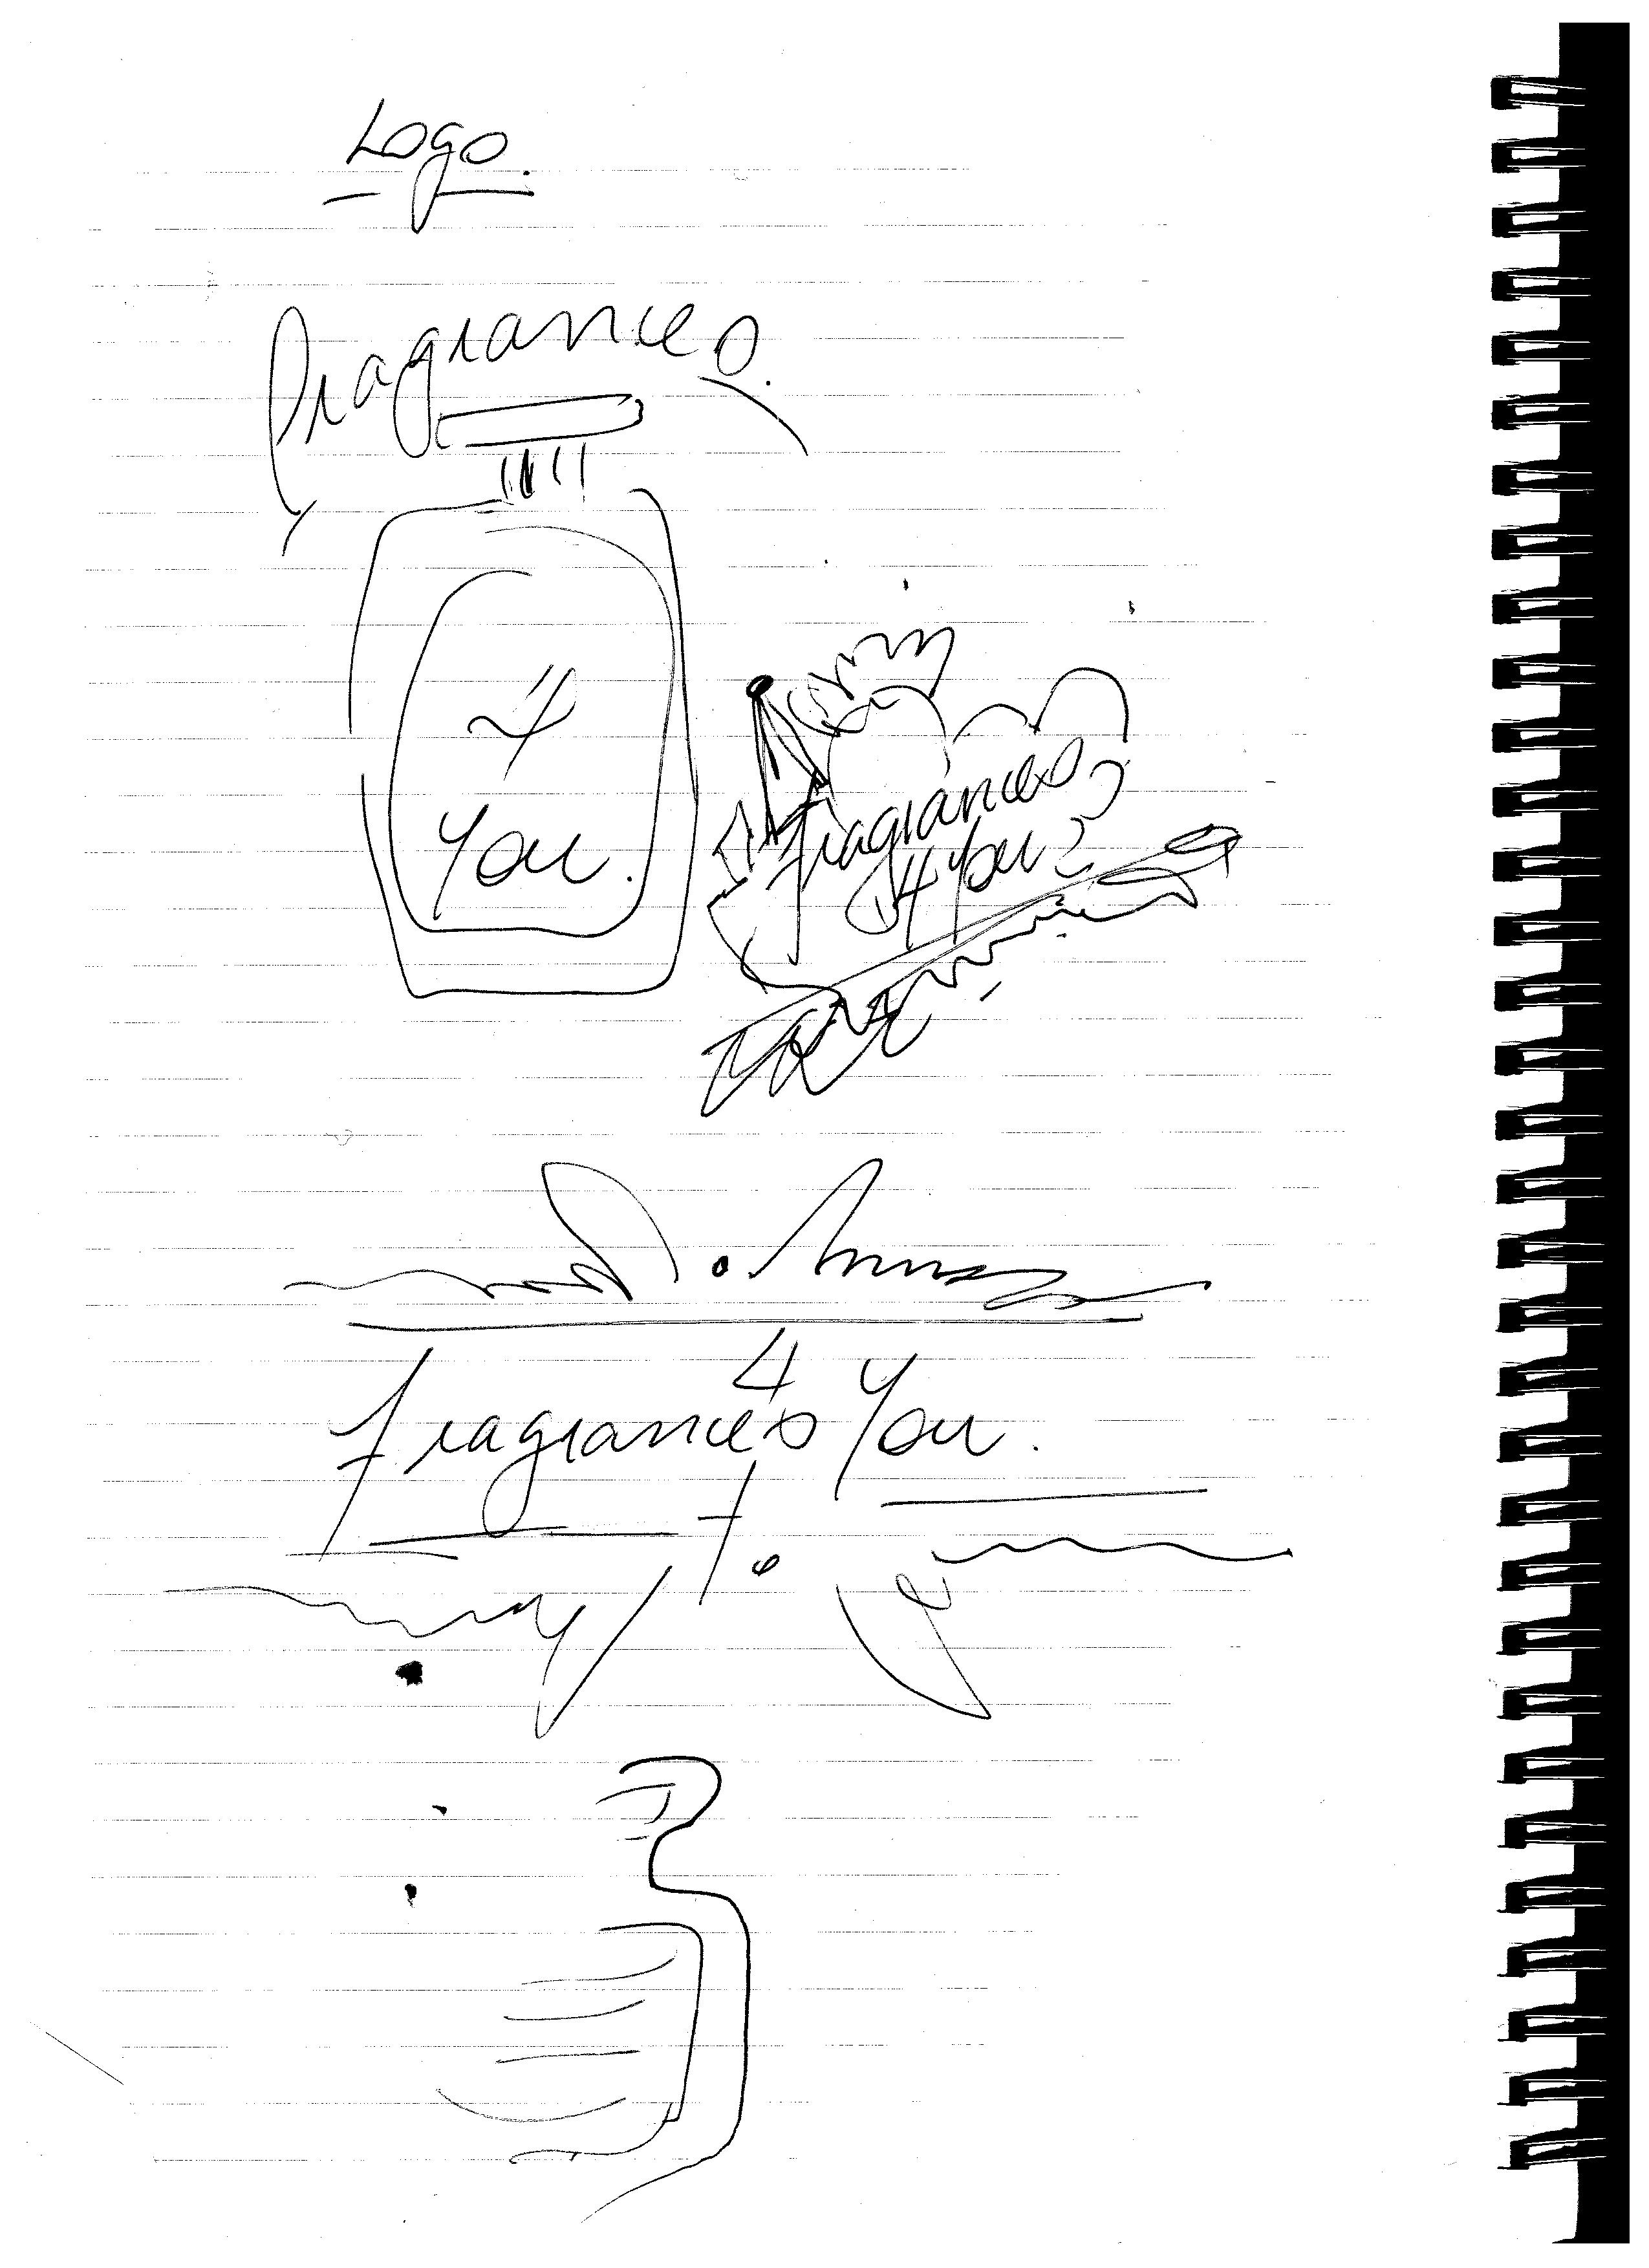 Logo.
fragrances.
4
You.
fragrances
4 You
4
fragrances You.